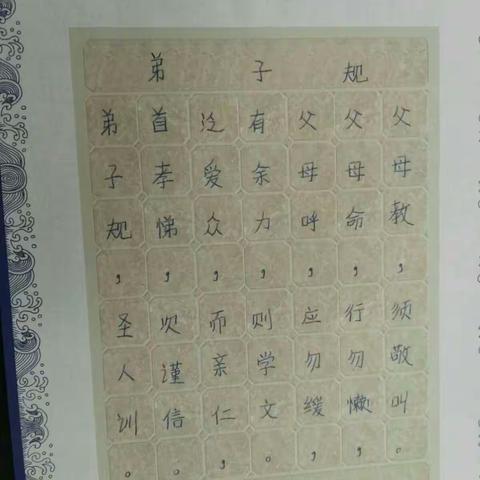 弟子规
弟子规，圣人训。
首孝悌，次谨信。
泛爱众，而亲仁，
有余力，则学文。
父母呼，应勿缓，
父母命，行勿懒，
父母教，须敬叫。